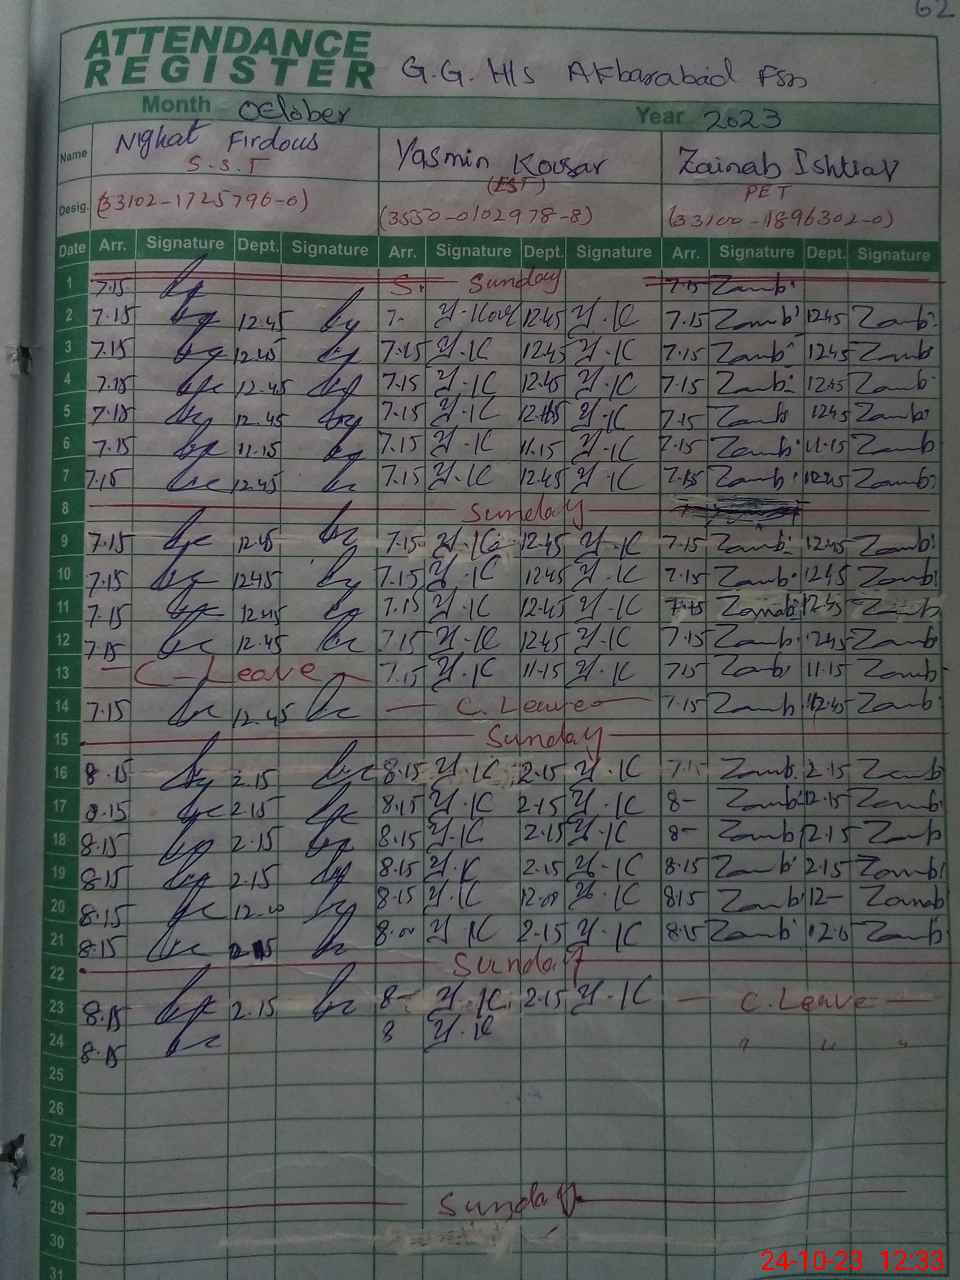 62
ATTENDANCE
REGISTER G.G. H/s Akbarabad FSD
Month October Year 2023
Name Nighat Firdous Yasmin Kousar Zainab Ishtiaq
S.S.T (EST) PET
Desig. (33102-1725796-0) (3550-0102978-8) (33100-1896302-0)
Date Arr. Signature Dept. Signature Arr. Signature Dept. Signature Arr. Signature Dept. Signature
1 7.15 S. Sunday 7.15 Zainb
2 7.15 12.45 7- Y.Kour 12.45 Y.K 7.15 Zainb 12.45 Zainb
3 7.15 12.45 7.15 Y.K 12.45 Y.K 7.15 Zainb 12.45 Zainb
4 7.15 12.45 7.15 Y.K 12.45 Y.K 7.15 Zainb 12.45 Zainb
5 7.15 12.45 7.15 Y.K 12.45 Y.K 7.15 Zainb 12.45 Zainb
6 7.15 11.15 7.15 Y.K 11.15 Y.K 7.15 Zainb 11.15 Zainb
7 7.15 12.45 7.15 Y.K 12.45 Y.K 7.15 Zainb 12.45 Zainb
8 Sunday
9 7.15 12.45 7.15 Y.K 12.45 Y.K 7.15 Zainb 12.45 Zainb
10 7.15 12.45 7.15 Y.K 12.45 Y.K 7.15 Zainb 12.45 Zainb
11 7.15 12.45 7.15 Y.K 12.45 Y.K 7.15 Zainab 12.45 Zainb
12 7.15 12.45 7.15 Y.K 12.45 Y.K 7.15 Zainb 12.45 Zainb
13 C-Leave 7.15 Y.K 11.15 Y.K 7.15 Zainb 11.15 Zainb
14 7.15 12.45 C.Leave 7.15 Zainb 12.45 Zainb
15 Sunday
16 8.15 2.15 8.15 Y.K 2.15 Y.K 7.15 Zainb 2.15 Zainb
17 8.15 2.15 8.15 Y.K 2.15 Y.K 8- Zainb 2.15 Zainb
18 8.15 2.15 8.15 Y.K 2.15 Y.K 8- Zainb 2.15 Zainb
19 8.15 2.15 8.15 Y.K 2.15 Y.K 8.15 Zainb 2.15 Zainb
20 8.15 12.00 8.15 Y.K 12.00 Y.K 8.15 Zainb 12- Zainab
21 8.15 2.15 8.00 Y.K 2.15 Y.K 8.15 Zainb 2.15 Zainb
22 Sunday
23 8.15 2.15 8- Y.K 2.15 Y.K C.Leave
24 8.15 8 Y.K " " "
25
26
27
28
29 Sunday
30
31
24-10-23 12:33